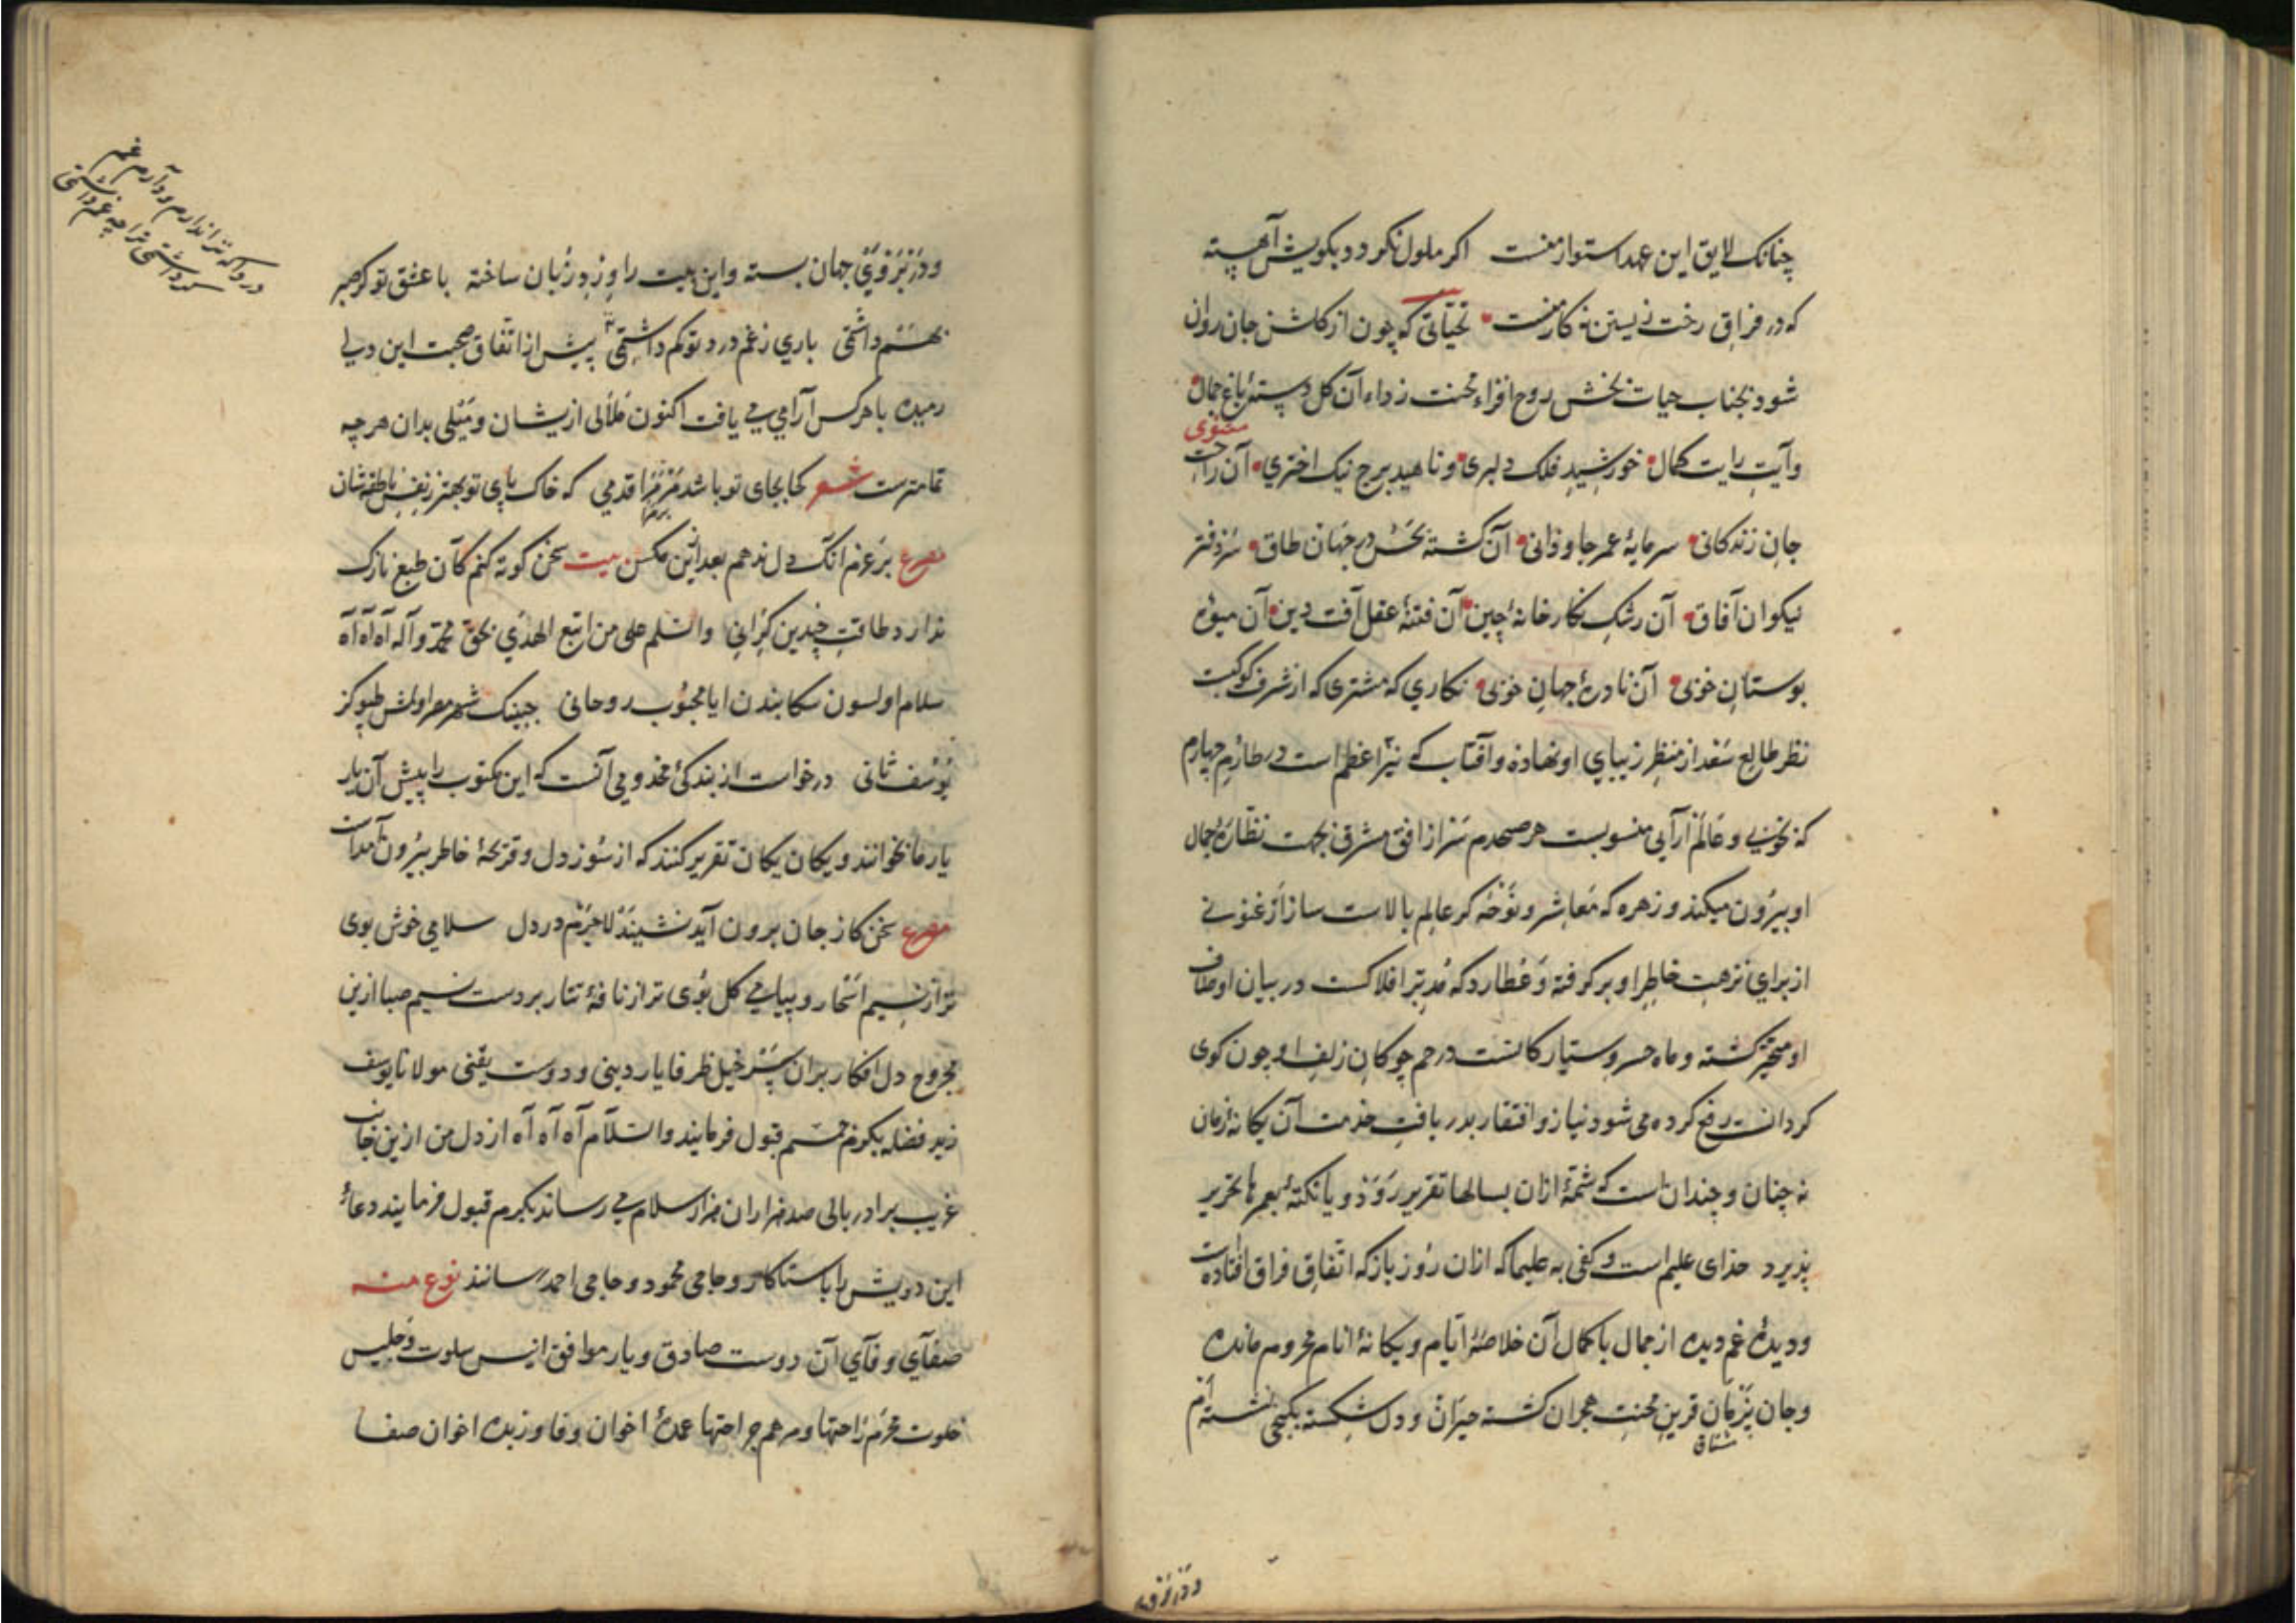 چنانک لایق این عهد استوار منست اکر ملول نکردد بکویش آهسته
که در فراق رخت زیستن نه کار منست تحیّاتی که چون از کلشن جان روان
شود بجناب حیات بخش روح افزاء محنت زداء آن کل دستهٔ باغ جمال
وآیت رایت کمال خورشید فلک دلبری وناهید برج نیک اختری مثنوی آن راحت
جان زندکانی سرمایهٔ عمر جاودانی آن کشته بحسن در جهان طاق سردفتر
نیکوان آفاق آن رشک نکارخانهٔ چین آن فتنهٔ عقل آفت دین آن میوهٔ
بوستان خوبی آن نادرهٔ جهان خوبی نکاری که مشتری که از شرف کوکبت
نظر طالع سعد از منظر زیبای او نهاده وآفتاب که نیّر اعظم است در طارم چهارم
که بخوبی و عالم آرایی منسوبست هر صبحدم سر از افق مشرق بجهت نظارهٔ جمال
او بیرون میکند و زهره که معاشر و نوحه کر عالم بالاست ساز ارغنونی
از برای نزهت خاطر او برکرفته و عطارد که مدبّر افلاکست در بیان اوصاف
او متحیّر کشته و ماه خسرو ستیارکانست در خم چوکان زلف او چون کوی
کردانست رفع کرده می شود نیاز و افتقار بدریافت خدمت آن یکانهٔ زمان
نه چنان و چندان است که شمهٔ ازان بسالها تقریر رود و یا نکتهٔ بعمرها تحریر
پذیرد خدای علیم است و کفی به علیما که ازان روز باز که اتفاق فراق افتاده است
ودیدهٔ غم دیده از جمال باکمال آن خلاصهٔ ایّام و یکانهٔ انام محروم مانده
وجان پژمان قرین محنت هجران کشته حیران و دل شکسته بکنجی نشسته ام
مشتاق
ودر بروی
ودر بروی جهان بسته واین بیت را ورد زبان ساخته با عشق تو کر صبر
بهم داشتمی باری زغم درد تو کم داشتمی پیش از اتفاق صحبت این دل
رمیده با هرکس آرامی می یافت اکنون ملالی ازیشان و میلی بدان هرچه
تمامترست شعر کجا بجای تو باشد مرا قدمی که خاک پای تو بهتر ز نفس ناطقه شان
مصرع بر عزم آنک دل ندهم بعد ازین بکس بیت سخن کوته کنم کآن طبع نازک
ندارد طاقت چندین کرانی والسّلم علی من اتبع الهدی بحق محمّد وآله آه آه آه
سلام اولسون سکا بندن ایا محبوب روحانی
یوسف ثانی درخواست از بندکی مخدومی آنست که این مکتوب را پیش آن یار
یار ما بخوانند ویکان یکان تقریر کنند که از سوز دل و قریحهٔ خاطر بیرون آمده است
مصرع سخن کز جان برون آید نشیند لاجرم در دل سلامی خوش بوی
تر از نسیم اسحار و پیامی کل بوی تر از نافهٔ تتار بر دست نسیم صبا ازین
مجروح دل افکار بران سر خیل ظرفا یار دینی و دوست یقینی مولانا یوسف
زید فضله بکرم قبول فرمایند والسّلام آه آه آه از دل من ازین جانب
غریب برادر بالی صد هزاران هزار سلام می رساند بکرم قبول فرمایند دعاء
این درویش را با ستاکار وحاجی محمود و حاجی احمد رسانند نوع منه
صفای وفای آن دوست صادق و یار موافق انیس سلوت و جلیس
خلوت محرم راحتها ومرهم جراحتها عمدهٔ اخوان وفا وزبدهٔ اخوان صفا
دردا که ترا ندارم و دارم غم
کر داشتمی ترا چه غم داشتمی